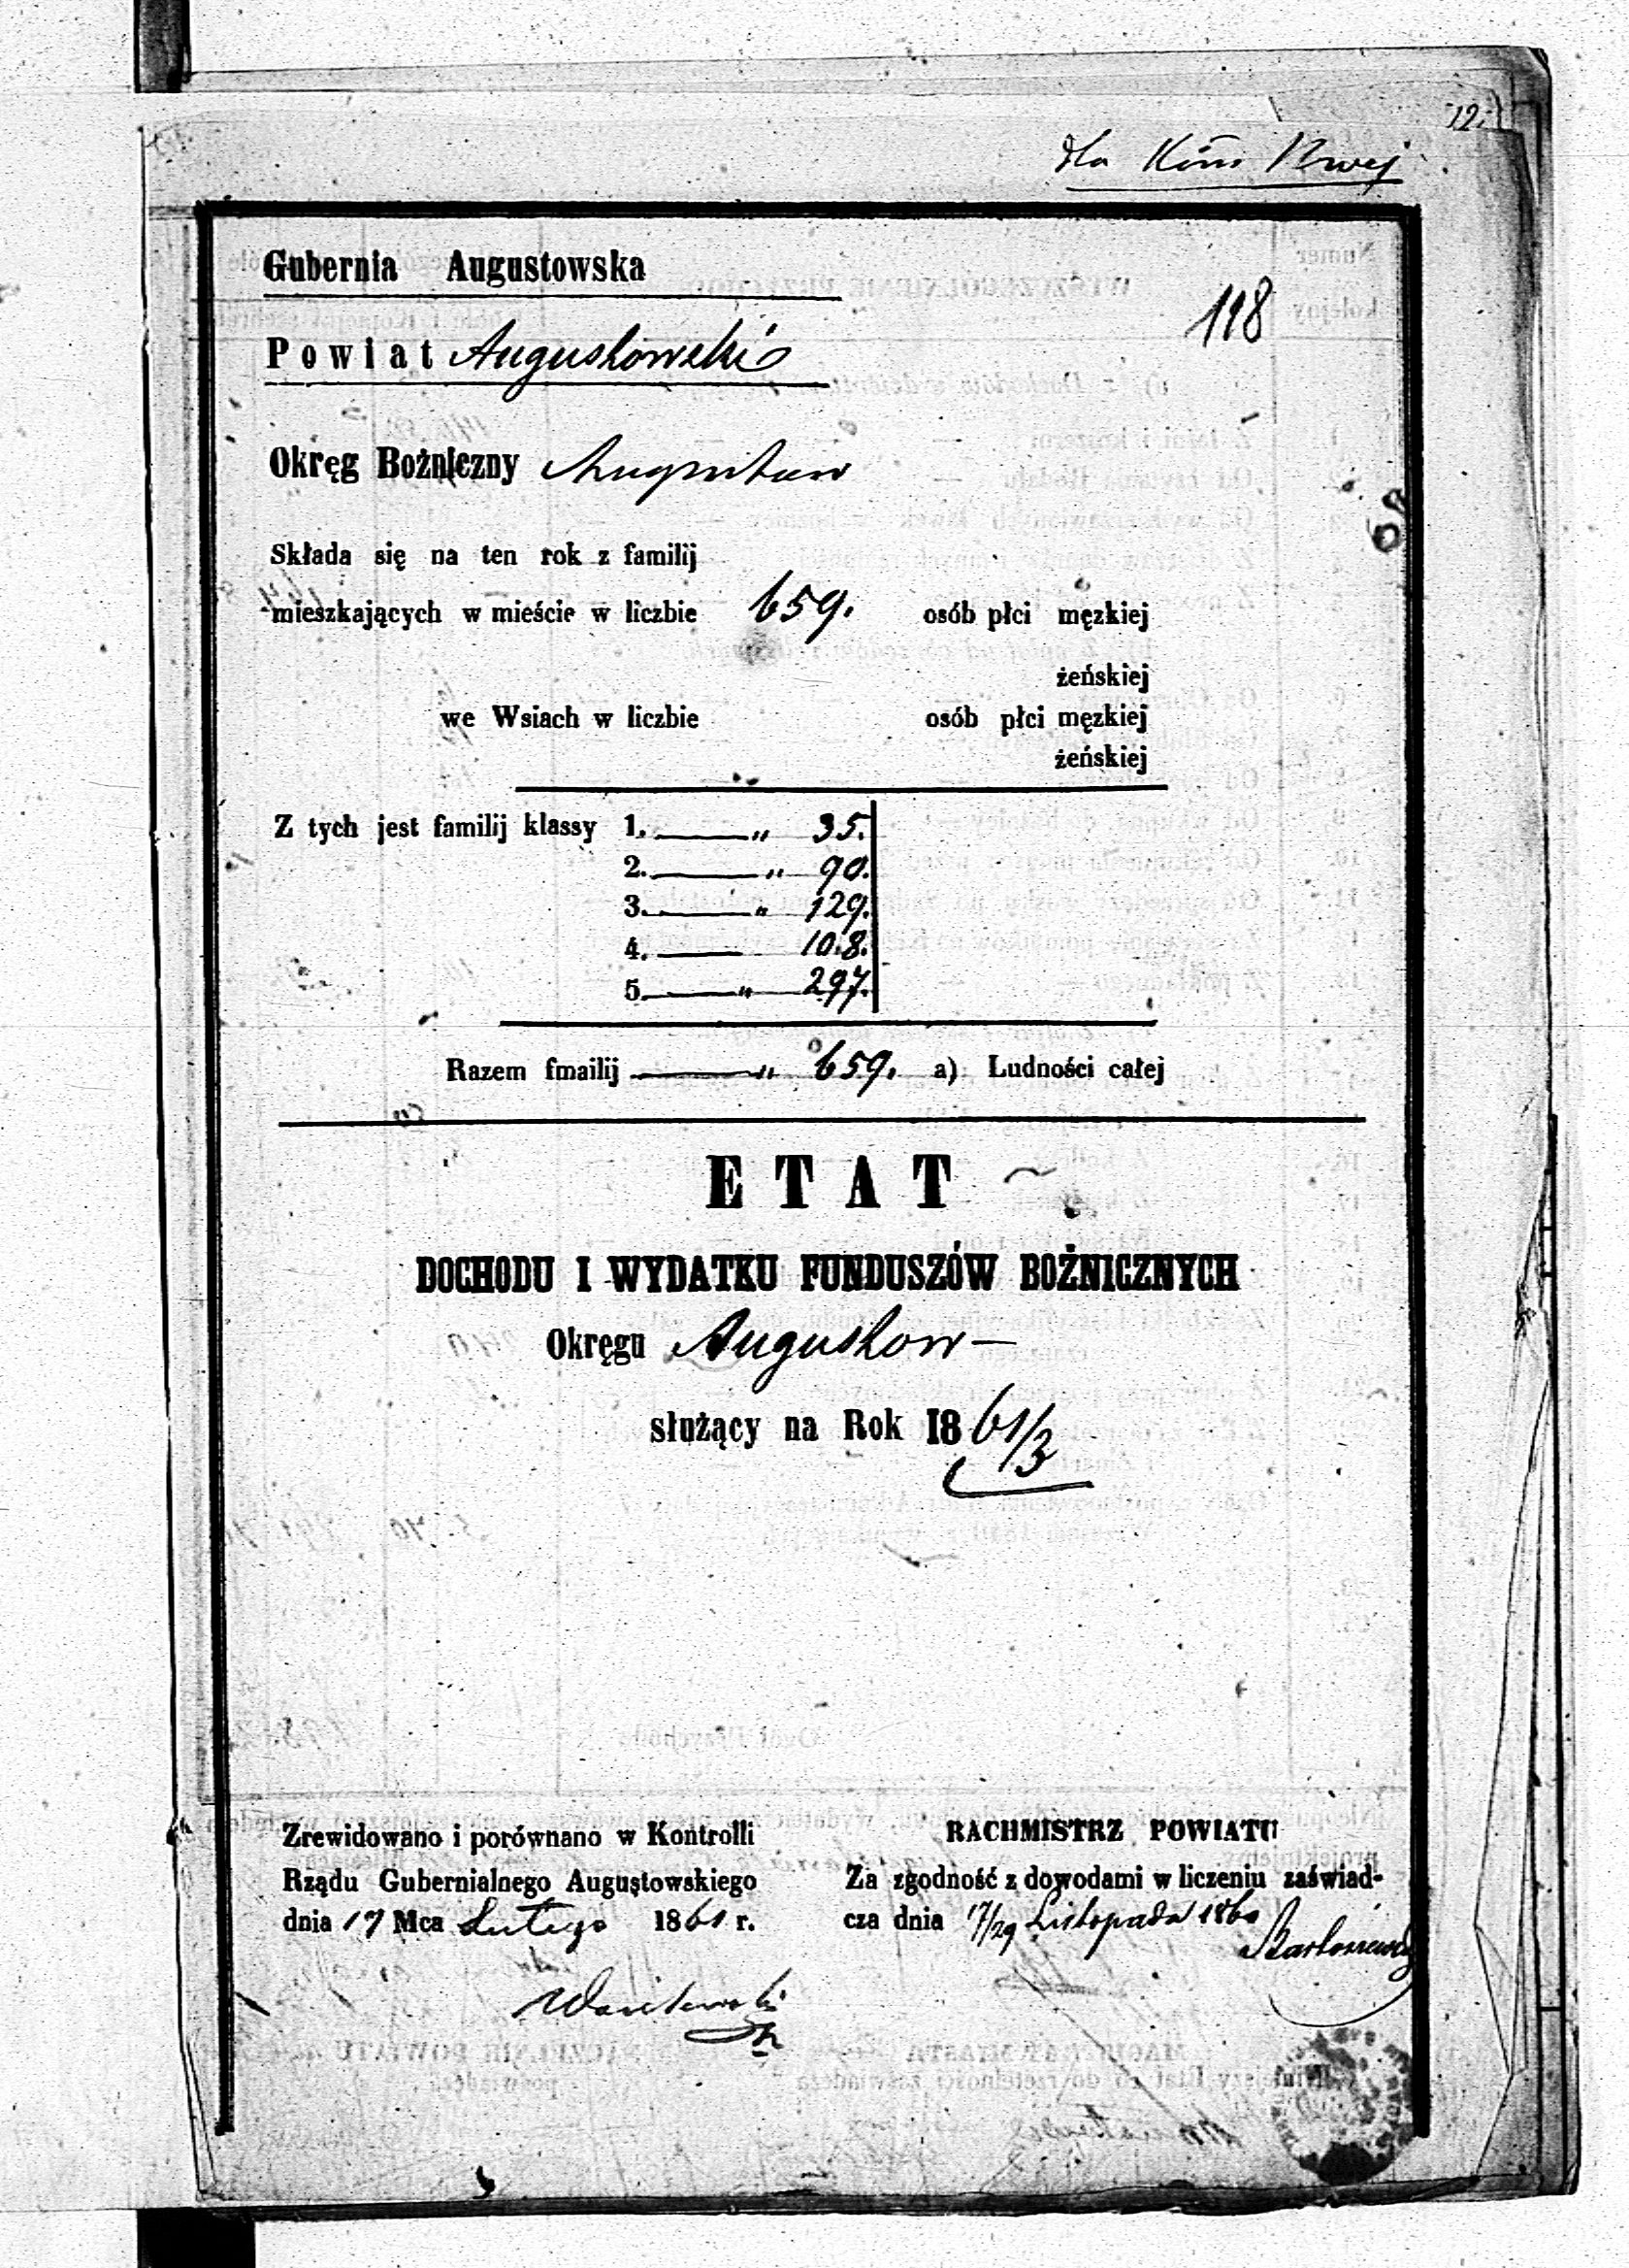 12.
dla Kom Rwej
Gubernia Augustowska
118
Powiat Augustowski
Okręg Bożniczny Augustow
Składa się na ten rok z familij
mieszkających w mieście w liczbie 659. osób płci męzkiej
żeńskiej
we Wsiach w liczbie osób płci męzkiej
żeńskiej
Z tych jest familij klassy 1. — „ 35.
2. — „ 90.
3. — „ 129.
4. — 108.
5. — „ 297.
Razem fmailij — „ 659. a) Ludności całej
ETAT
DOCHODU I WYDATKU FUNDUSZÓW BOŻNICZNYCH
Okręgu Augustow —
służący na Rok 1861/3
Zrewidowano i porównano w Kontrolli
Rządu Gubernialnego Augustowskiego
dnia 17 Mca Lutego 1861 r.
RACHMISTRZ POWIATU
Za zgodność z dowodami w liczeniu zaświad-
cza dnia 17/29 Listopada 1860